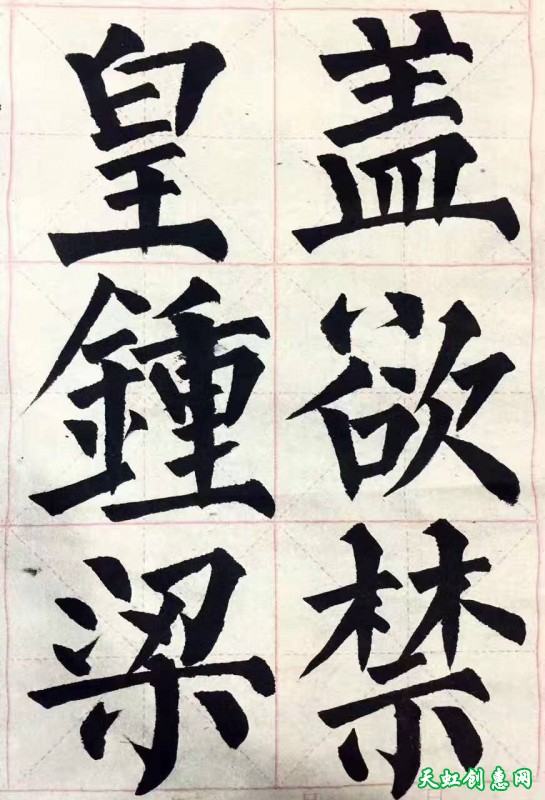 盖欲禁
皇鍾梁
天虹创惠网